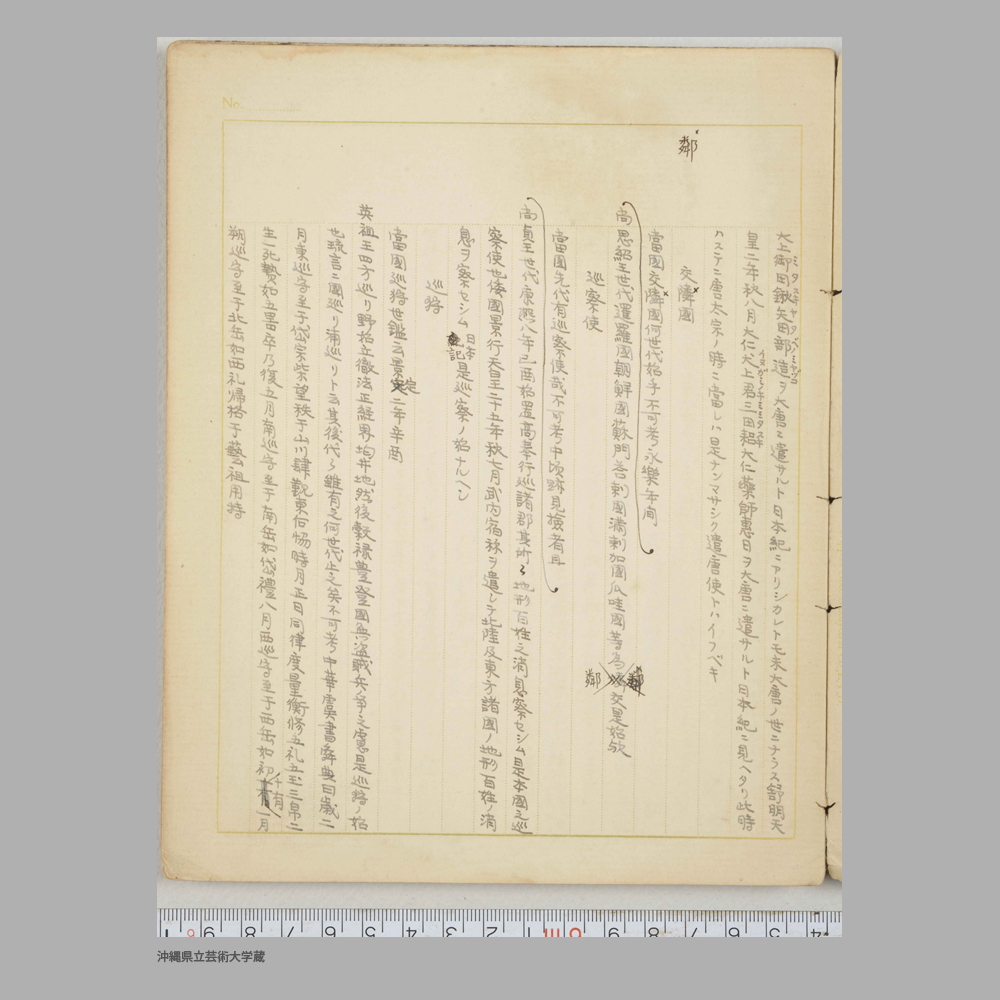 No.
鄰
大上御田鍬矢田部造ヲ大唐ニ遣サルト日本紀ニアリシカレトモ未大唐ノ世ニナラス舒明天
皇二年秋八月大仁犬上君三田耜大仁藥師惠日ヲ大唐ニ遣サルト日本紀ニ見ヘタリ此時
ハステニ唐太宗ノ時ニ當レハ是ナンマサシク遣唐使トハイフベキ
交隣國
當國交隣國何世代始乎不可考永樂年間
尚思紹王世代暹羅國朝鮮國蘇門荅剌國滿剌加國瓜哇國等為鄰交是始欤
巡察使
當國先代有巡察使哉不可考中頃跡見撿者再
尚貞王世代康熙八年己酉始置高奉行巡諸郡其所々地形百姓之消息察セシム是本國之巡
察使也倭國景行天皇二十五年秋七月武内宿祢ヲ遣シテ北陸及東方諸國ノ地形百姓ノ消
息ヲ察セシム日本記是巡察ノ始ナルヘシ
巡狩
當國巡狩世鑑云景定二年辛酉
英祖王四方巡リ野始立徹法正經界均井地然後穀禄豊登國無盗賊兵ノ争之虞是巡狩ノ始
也琉言ニ國巡リ浦巡リト云其後代々雖有之何世代止之矣不可考中華虞書舜典曰歳二
月東巡守至于岱宗柴望秩于山川肆覲東后協時月正日同律度量衡修五礼五玉三帛二
生一死贄如五器卒乃復五月南巡守至于南岳如岱禮八月西巡守至于西岳如初十有一月
朔巡守至于北岳如西礼帰格于藝祖用特
沖縄県立芸術大学蔵